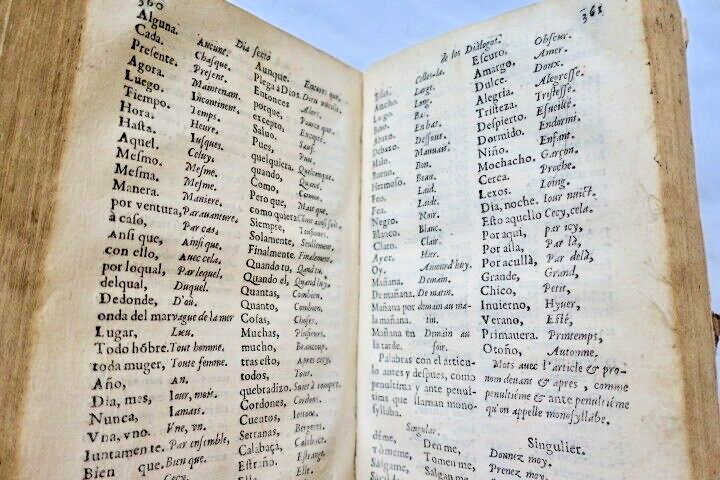 360
Dia sexto
Alguna. Aucune. Aunque. Encores que.
Cada. Chasque. Plega à Dios. Dieu vueille.
Presente. Present. Entonces Alors.
Agora. Maintenant. porque, Pource que.
Luego. Incontinent. excepto, Excepté.
Tiempo. Temps. Saluo. Sauf.
Hora. Heure. Pues, Puis.
Hasta. Iusques. quelquiera. Quelconque.
Aquel. Celuy. quando, Quand.
Mesmo. Mesme. Como, Comme.
Mesma. Mesme. Pero que, Mais que.
Manera. Maniere. como quiera
por ventura, Parauanture. Siempre, Tousiours.
à caso, Par cas. Solamente, Seullement,
Ansi que, Ainsi que. Finalmente. Finalement.
con ello, Auec cela. Quando tu, Quand tu.
por loqual, Par lequel. Quando el, Quand luy.
delqual, Duquel. Quantas, Combien.
Dedonde, D'où. Quanto, Combien.
onda del mar vague de la mer Cosas, Choses.
Lugar, Lieu. Muchas, Plusieurs.
Todo hõbre. Tout homme. mucho, Beaucoup.
toda muger, Toute femme. tras esto, Apres cecy.
Año, An. todos, Tous.
Dia, mes, Iour, mois. quebradizo.
Nunca, Iamais. Cordones, Cordons.
Vna, vno. Vne, vn. Cuentos,
Iuntamente. Par ensemble, Serranas, Bergeres.
Bien que. Bien que. Calabaça, Calebace.
Cecy. Estraño. Estrange.
Ella. Elle.
361
de los Dialogos.
Celles-la. Escuro. Obscur.
Ancho. Large. Amargo. Amer.
Largo. Long. Dulce. Doux.
Baxo. Bas. Alegria. Alegresse.
Abaxo. En bas. Tristeza. Tristesse.
Debaxo. Dessous. Despierto. Esueillé.
Malo. Mauuais. Dormido. Endormi.
Bueno. Bon. Niño. Enfant.
Hermoso. Beau. Mochacho. Garçon.
Feo. Laid. Cerca. Proche.
Fea. Laide. Lexos. Loing.
Negro. Noir. Dia, noche. Iour nuict.
Blanco. Blanc. Esto aquello Cecy, cela.
Claro. Clair. Por aqui, par icy,
Ayer. Hier. Por alla, Par là,
Oy. Aujourd'huy. Por acullà, Par delà,
Mañana. Demain. Grande, Grand,
De mañana. De matin. Chico, Petit,
Mañana por demain au ma- Inuierno, Hyuer,
la mañana. tin. Verano, Esté,
Mañana en Demain au Primauera. Printemps,
la tarde. soir. Otoño, Automne.
Palabras con el articu- Mots avec l'article & pro-
lo antes y despues, como nom deuant & apres, comme
penultima y ante penul- penultiéme & ante penultiéme
tima que llaman mono- qu'on appelle monosyllabe.
syllaba.
Singular. Singulier.
déme, Den me, Donnez moy.
Tòmeme, Tomen me, Prenez moy.
Sálgame, Salgan me